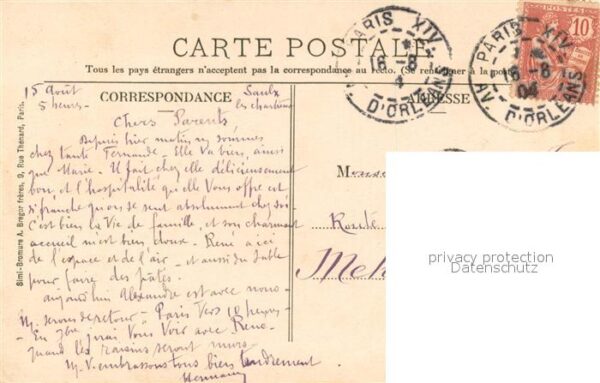 CARTE POSTALE
Tous les pays étrangers n'acceptent pas la correspondance au recto. (Se renseigner à la poste)
CORRESPONDANCE
ADRESSE
PARIS XIV
16 - 8
04
AV. D'ORLEANS
PARIS XIV
-8
04
AV. D'ORLEANS
POSTES
10
Simi-Bromure A. Breger frères, 9, Rue Thénard, Paris.
15 Août
5 heures
Saulx
les chartreux
Chers Parents
Depuis hier matin ns sommes
chez tante Fernande. Elle va bien, ainsi
que Marie. Il fait chez elle délicieusement
bon et l'hospitalité qu'elle vous offre est
si franche qu'on se sent absolument chez soi.
C'est bien la vie de famille, et son charmant
accueil m'est bien doux. René a ici
de l'espace et de l'air et aussi du sable
pour faire des pâtés.
aujourd'hui Alexandre est avec nous.
ns serons de retour à Paris vers 10 heures.
En 7bre j'irai Vous Voir avec René
quand les raisins seront murs.
ns Vs embrassons tous bien tendrement
Route
privacy protection
Datenschutz